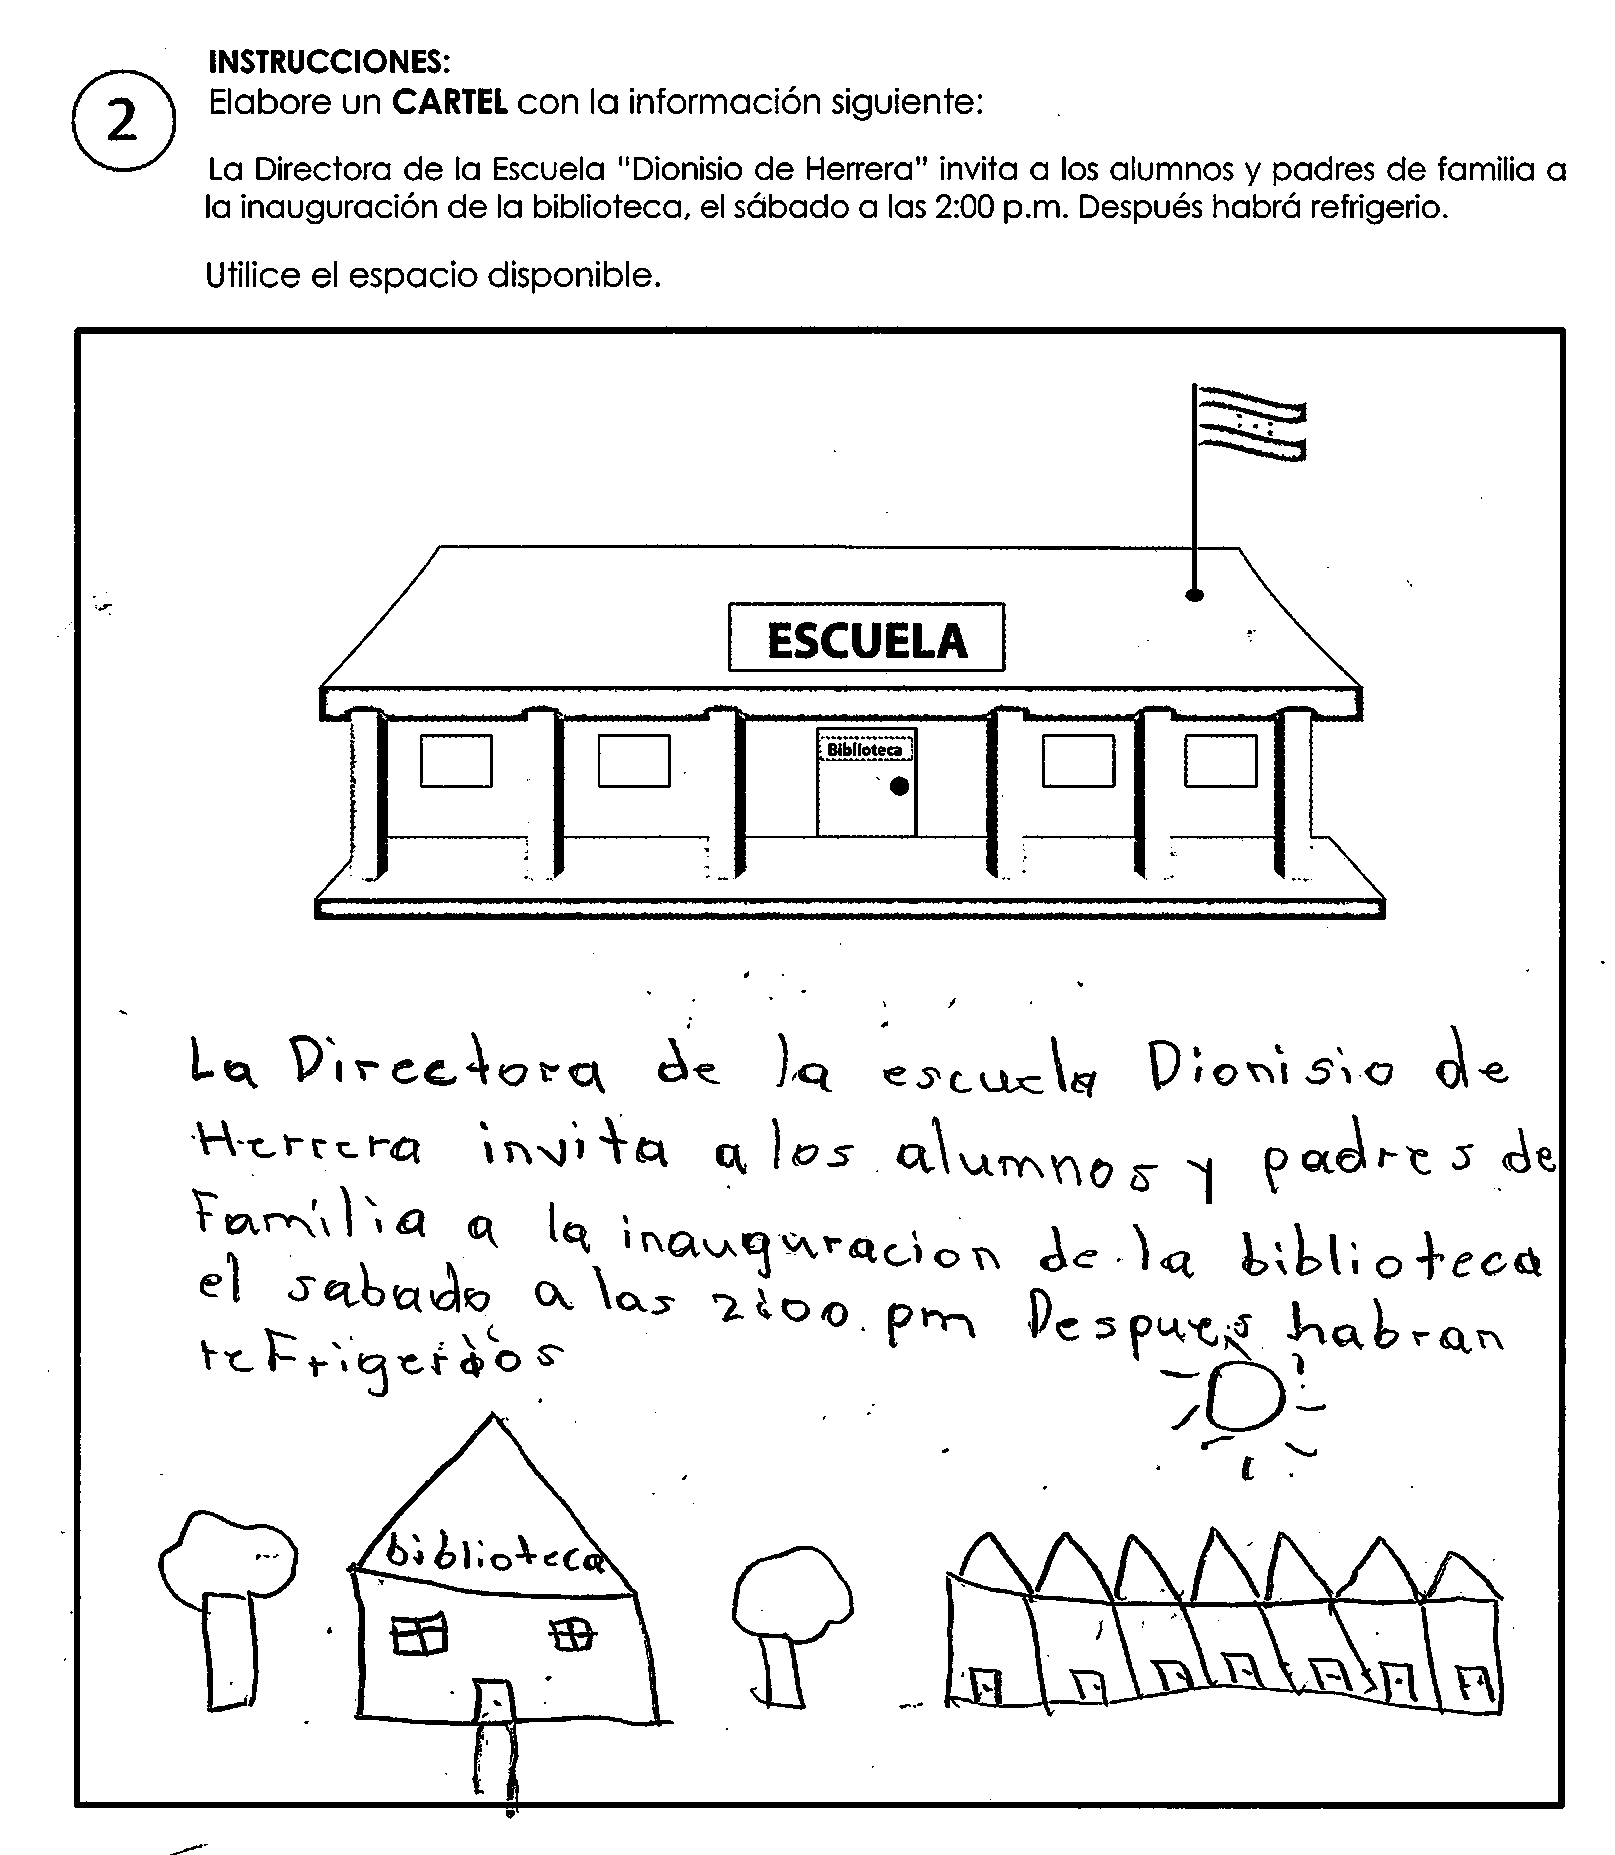 INSTRUCCIONES:
2
Elabore un CARTEL con la información siguiente:
La Directora de la Escuela "Dionisio de Herrera" invita a los alumnos y padres de familia a
la inauguración de la biblioteca, el sábado a las 2:00 p.m. Después habrá refrigerio.
Utilice el espacio disponible.
ESCUELA
Biblioteca
La Directora de la escuela Dionisio de
Herrera invita a los alumnos y padres de
Familia a la inauguracion de la biblioteca
el sabado a las 2:00 pm Despues habran
reFrigerios
biblioteca